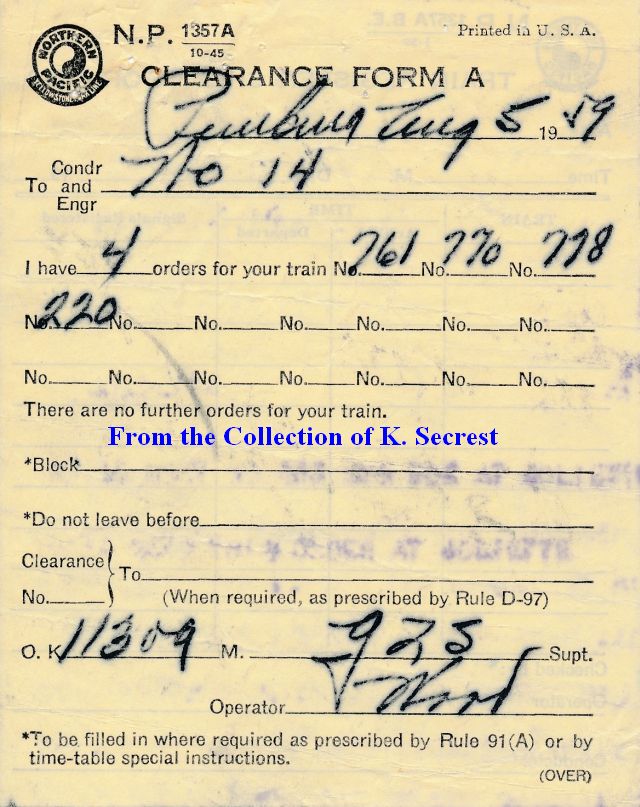 NORTHERN PACIFIC YELLOWSTONE PARK LINE
N.P. 1357A
10-45
Printed in U. S. A.
CLEARANCE FORM A
Aug 5 19 59
Condr
To and No 14
Engr
I have 4 orders for your train No. 761 No. 770 No. 778
No. 220 No. No. No. No. No. No.
No. No. No. No. No. No. No.
There are no further orders for your train.
From the Collection of K. Secrest
*Block
*Do not leave before
Clearance
To
No.
(When required, as prescribed by Rule D-97)
O. K. 11309 M. 925 Supt.
Operator
*To be filled in where required as prescribed by Rule 91(A) or by
time-table special instructions.
(OVER)